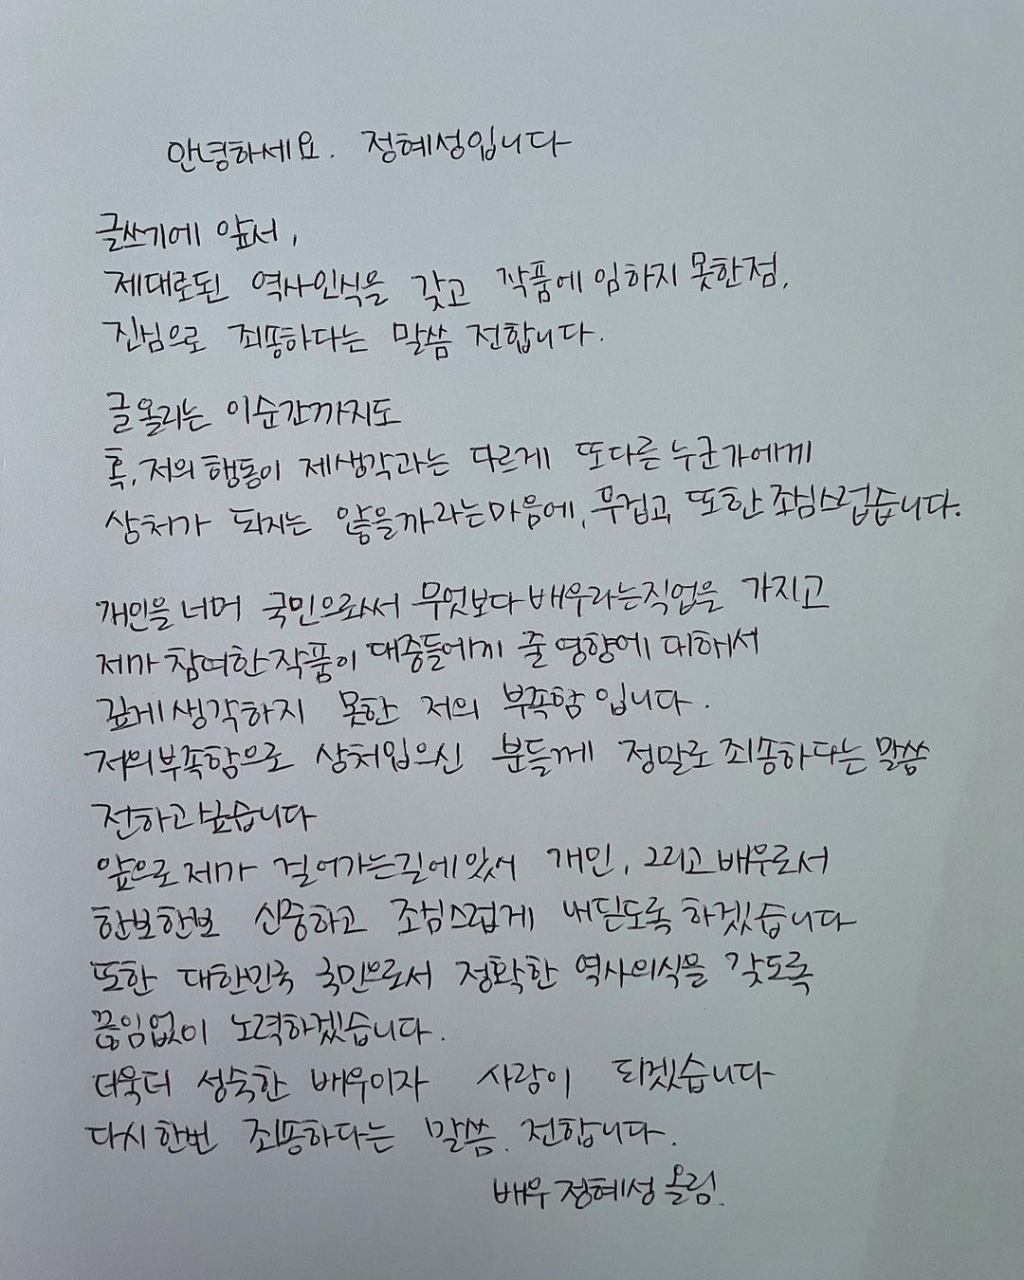 안녕하세요. 정혜성입니다
글쓰기에 앞서,
제대로된 역사인식을 갖고 작품에 임하지 못한점,
진심으로 죄송하다는 말씀 전합니다.
글올리는 이순간까지도
혹, 저의 행동이 제생각과는 다르게 또다른 누군가에게
상처가 되지는 않을까라는마음에, 무겁고, 또한 조심스럽습니다.
개인을 너머 국민으로써서 무엇보다 배우라는직업을 가지고
제가 참여한 작품이 대중들에게 줄 영향에 대해서
깊게 생각하지 못한 저의 부족함 입니다.
저의부족함으로 상처입으신 분들께 정말로 죄송하다는 말씀
전하고싶습니다
앞으로 제가 걸어가는길에있서 개인, 그리고 배우로서
한보한보 신중하고 조심스럽게 내딛도록 하겠습니다
또한 대한민국 국민으로서 정확한 역사의식을 갖도록
끊임없이 노력하겠습니다.
더욱더 성숙한 배우이자 사람이 되겠습니다
다시 한번 죄송하다는 말씀. 전합니다.
배우 정혜성 올림.